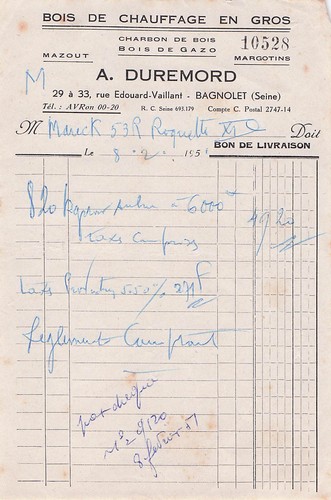 BOIS DE CHAUFFAGE EN GROS
CHARBON DE BOIS
BOIS DE GAZO
MAZOUT
10528
MARGOTINS
M
A. DUREMORD
29 à 33, rue Edouard-Vaillant - BAGNOLET (Seine)
Tél. : AVRon 00-20 R. C. Seine 693.179 Compte C. Postal 2747-14
M Mareck 53 R Roquette XI Doit
BON DE LIVRAISON
Le 8 . 2 . 195
820 Kg à 6000 4920
taxes comprises
taxe Production 5.50% 271F
Reglement Comptant
par chèque
8 février 51